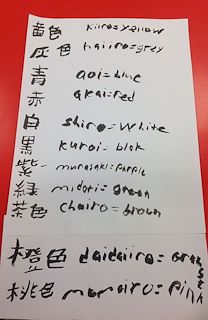 黄色 kiiro=yellow
灰色 haiiro=grey
青 aoi=blue
赤 akai=red
白 shiro=white
黒 kuroi=blak
紫 murasaki=purple
緑 midori=green
茶色 chairo=brown
橙色 daidaiiro=orange
桃色 momoiro=pink